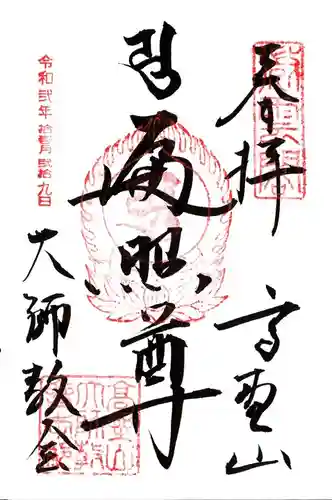 奉拝
高野山
遍照尊
令和弐年 拾壱月 弐拾九日
大師教会